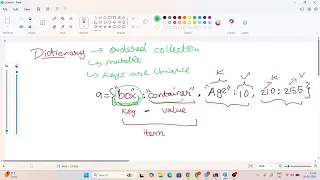 Dictionary → ordered collection
→ mutable
→ Keys are Unique
K V K V
a={"box":"container", "Age":10, 210:255}
key - value
item